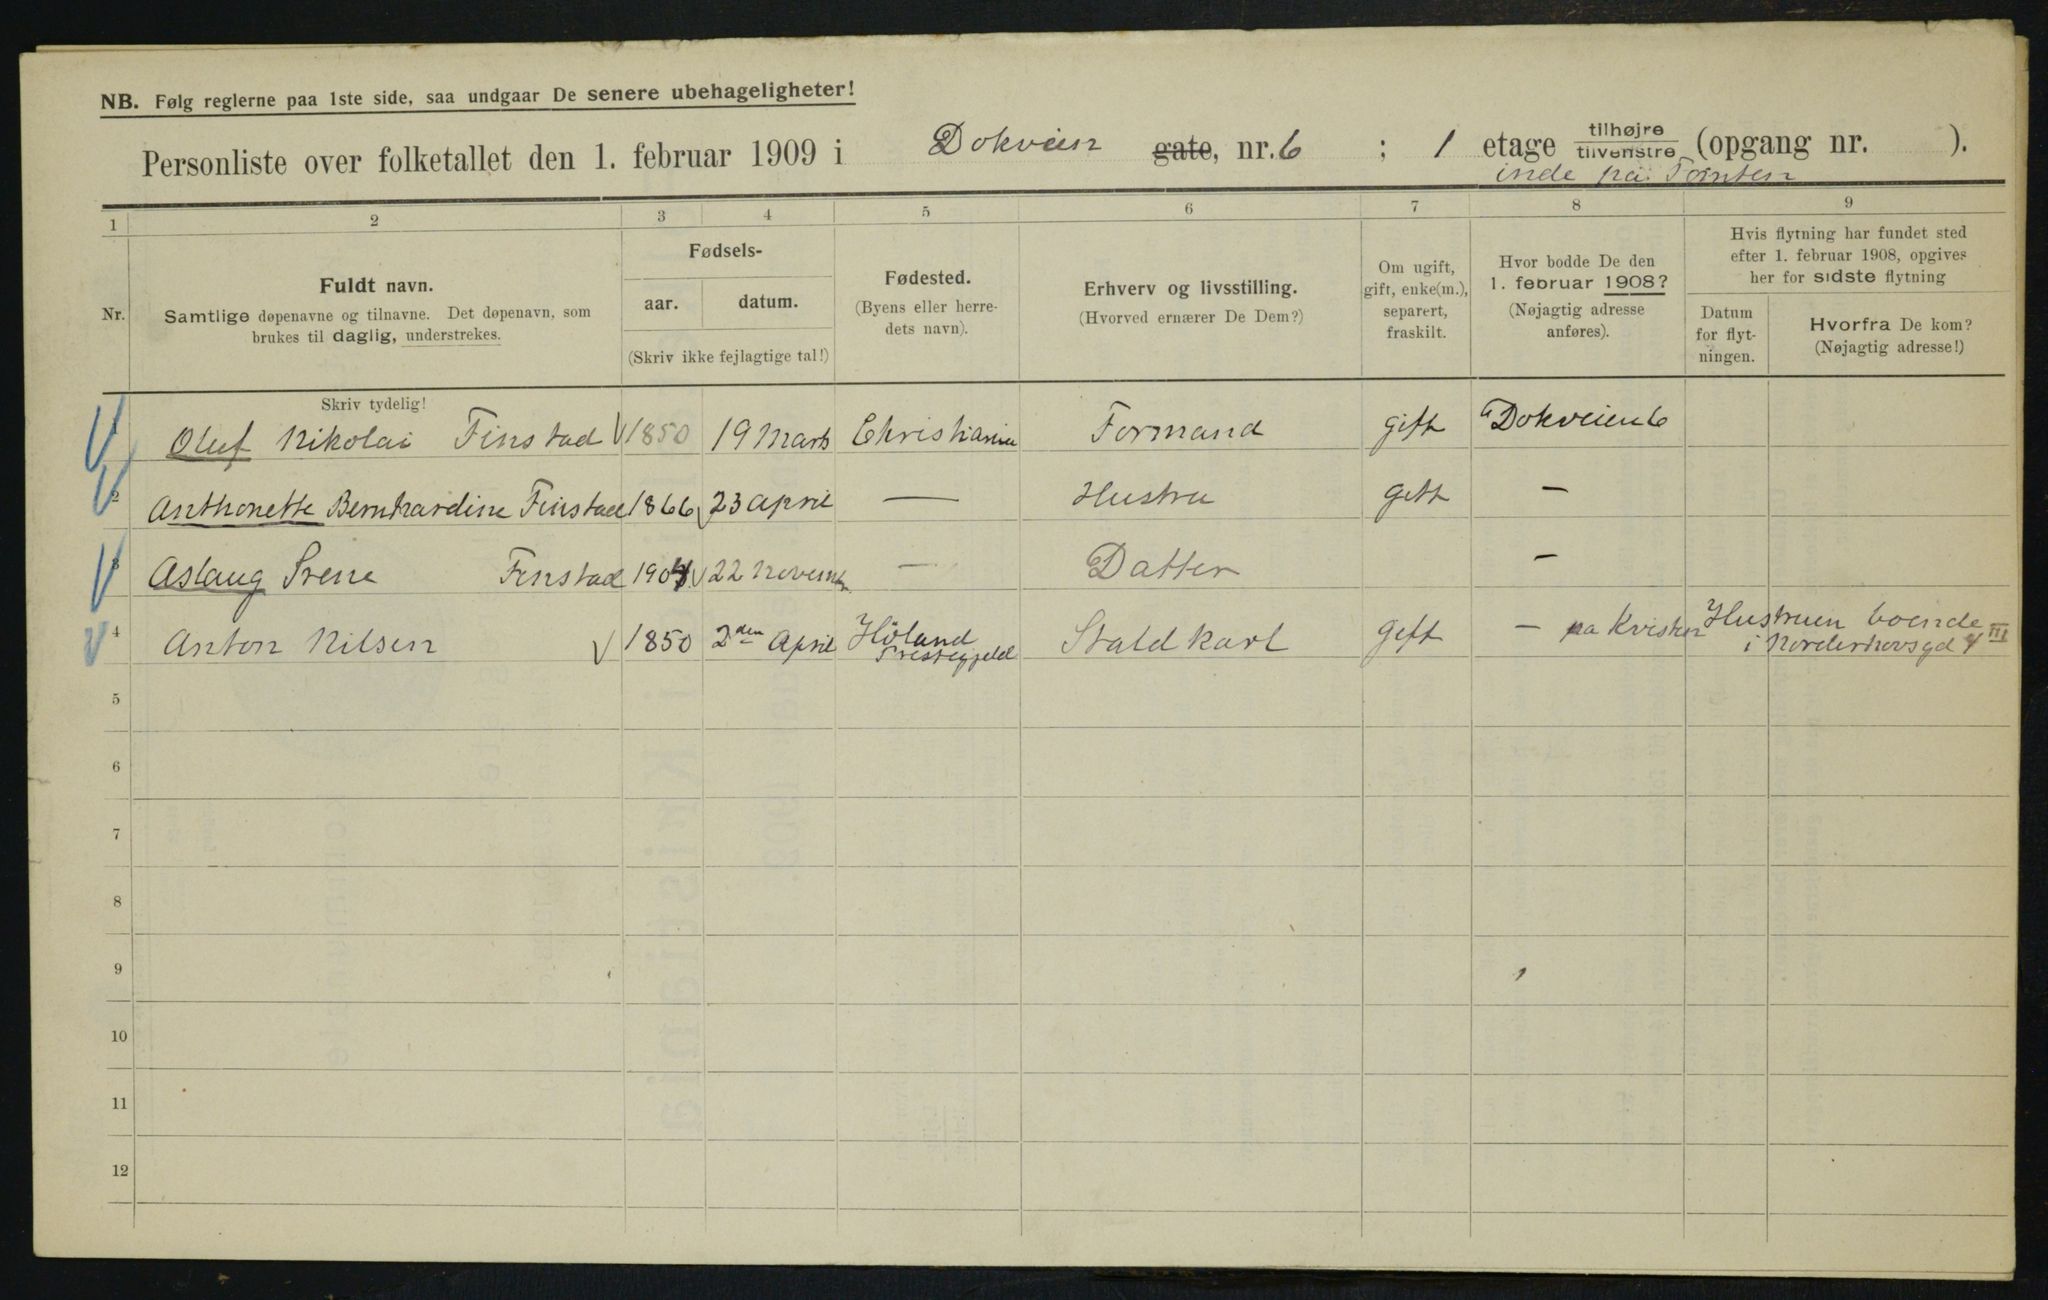 NB. Følg reglerne paa 1ste side, saa undgaar De senere ubehageligheter!
Personliste over folketallet den 1. februar 1909 i Dokveien gate, nr. 6 ; 1 etage tilhøjre tilvenstre (opgang nr. ).
inde på Tomten
1 2 3 4 5 6 7 8 9
Nr.
Fuldt navn.
Samtlige døpenavne og tilnavne. Det døpenavn, som
brukes til daglig, understrekes.
Skriv tydelig!
Fødsels-
aar. datum.
(Skriv ikke fejlagtige tal!)
Fødested.
(Byens eller herre-
dets navn).
Erhverv og livsstilling.
(Hvorved ernærer De Dem?)
Om ugift,
gift, enke(m.),
separert,
fraskilt.
Hvor bodde De den
1. februar 1908?
(Nøjagtig adresse
anføres).
Hvis flytning har fundet sted
efter 1. februar 1908, opgives
her for sidste flytning
Datum
for flyt-
ningen.
Hvorfra De kom?
(Nøjagtig adresse!)
1 Oluf Nikolai Finstad 1850 19 Marts Christiania Formand gift Dokveien 6
2 Anthonette Bernhardine Finstad 1866 23 April — Hustru gift —
3 Aslaug Irene Finstad 1904 22 Novembr — Datter —
4 Anton Nilsen 1850 2den April Høland Prestegjeld Stald karl Gift — pa Kvisten Hustruen boende
i Norderhovsgd 4 III
5
6
7
8
9
10
11
12